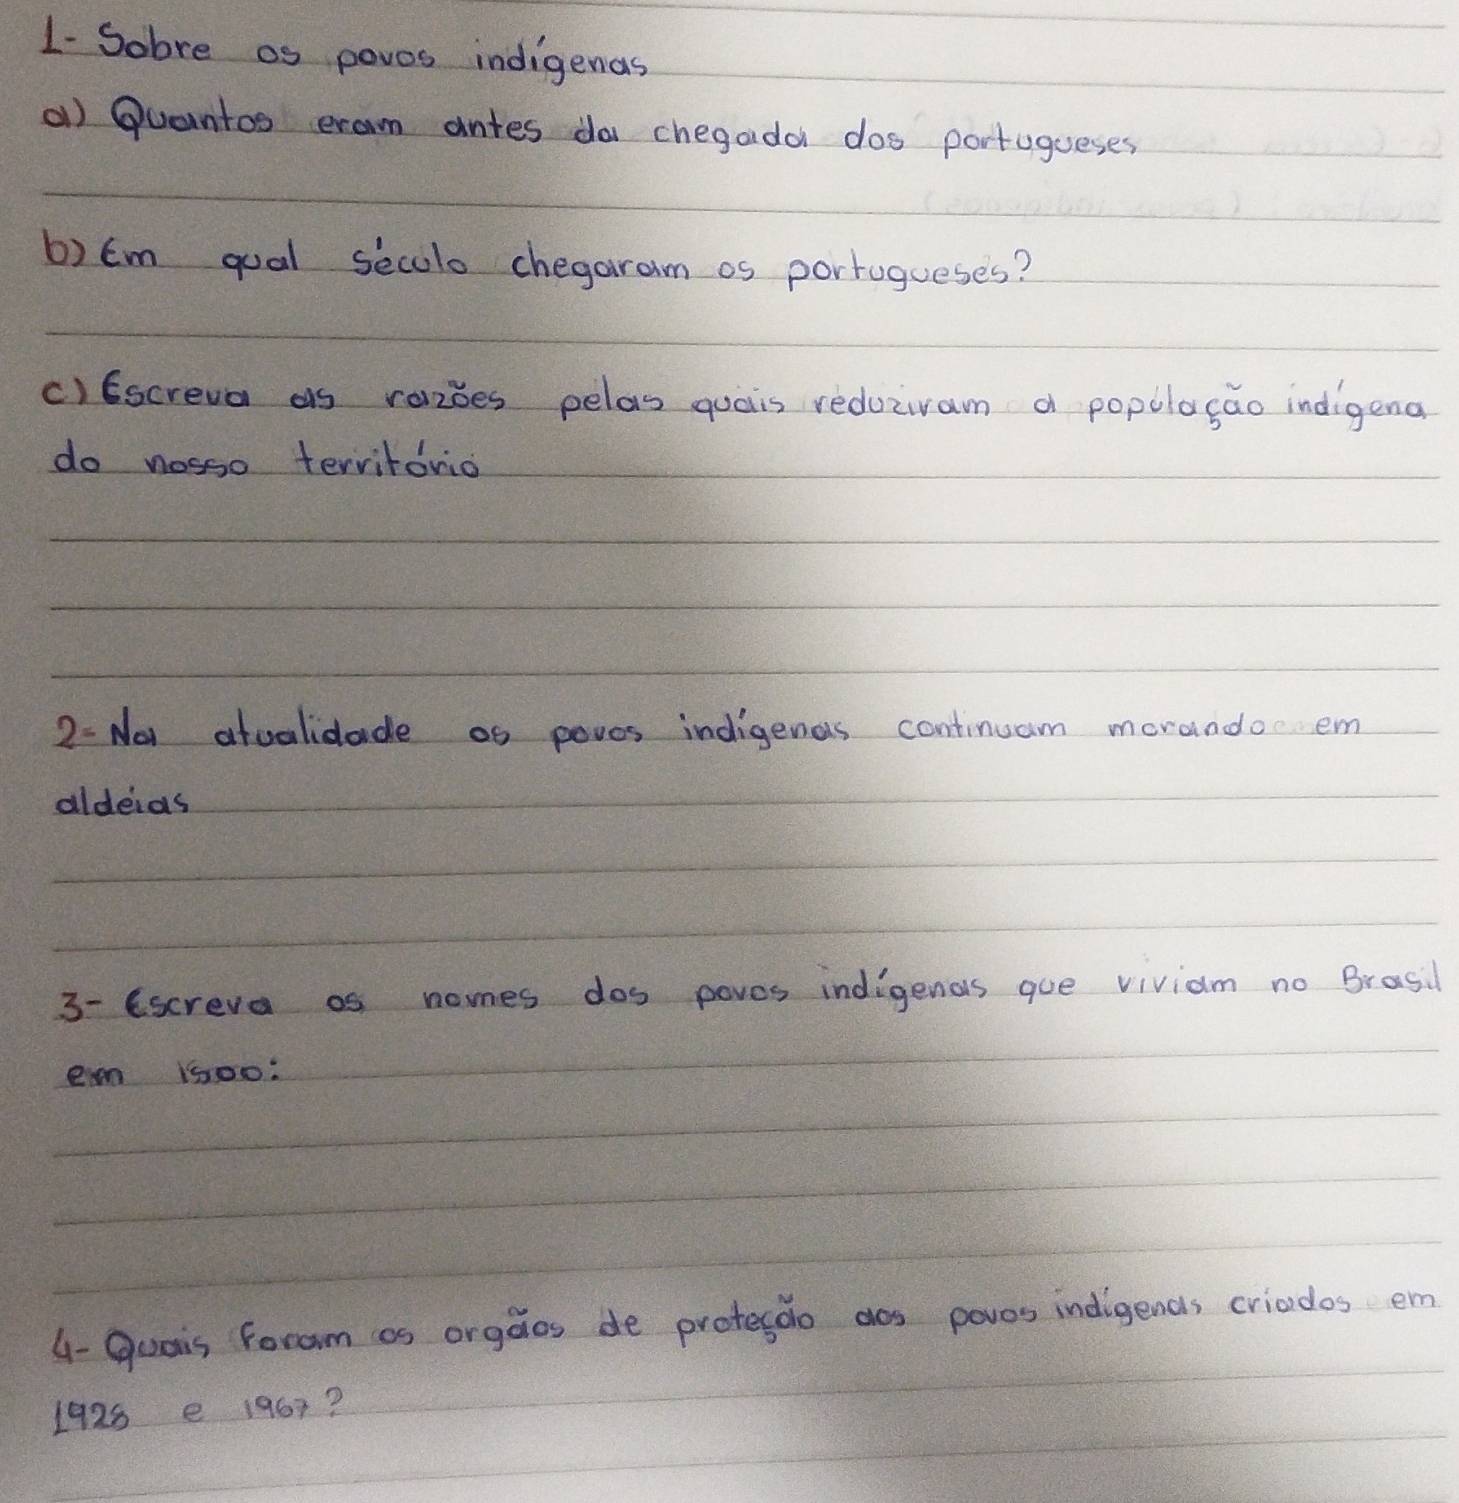 1- Sobre os povos indígenas
a) Quantos eram antes da chegada dos portugueses
b) Em qual século chegaram os portugueses?
c) Escreva as razões pelas quais reduziram a população indígena
do nosso território
2- Na atualidade os povos indígenas continuam morando em
aldeias
3- Escreva os nomes dos povos indígenas que viviam no Brasil
em 1500:
4- Quais foram os orgãos de proteção aos povos indígenas criados em
1928 e 1967?